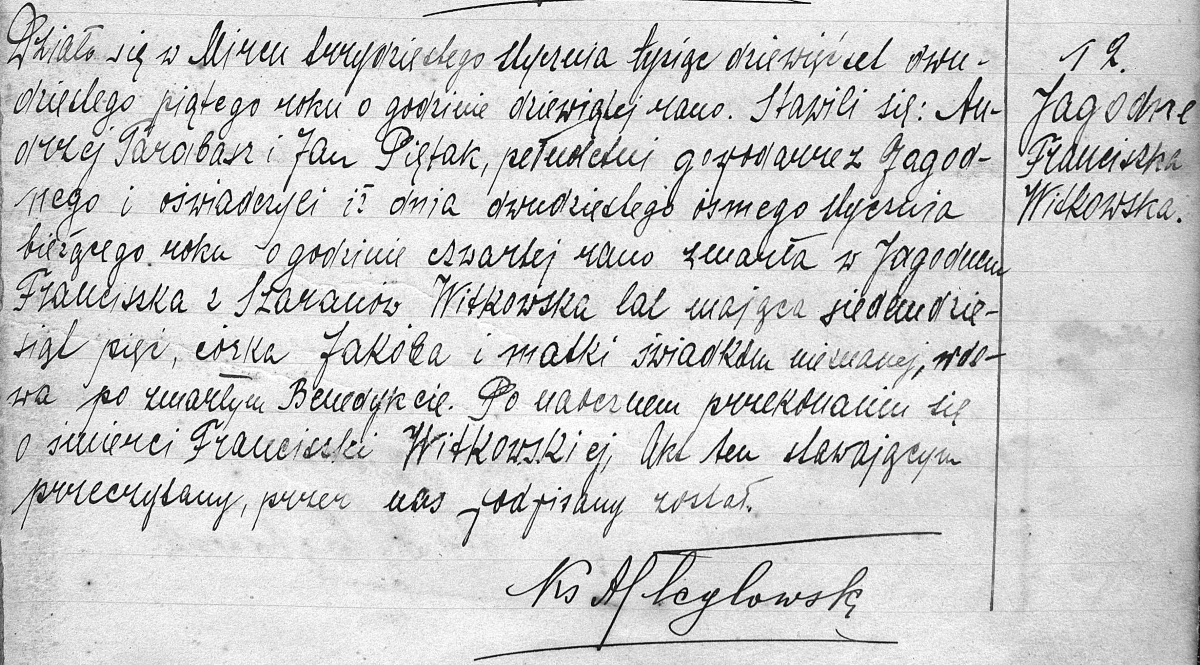 Działo się w Mircu trzydziestego stycznia tysiąc dziewięćset dwu-
dziestego piątego roku o godzinie dziewiątej rano. Stawili się: An-
drzej Tarabasz i Jan Piętak, pełnoletni gospodarze z Jagod-
nego i oświadczyli iż dnia dwudziestego ósmego stycznia
bieżącego roku o godzinie czwartej rano zmarła w Jagodnem
Franciszka z Szaranów Witkowska lat mająca siedemdzie-
siąt pięć, córka Jakóba i matki świadkom nieznanej, wdo-
wa po zmarłym Benedykcie. Po naocznem przekonaniu się
o śmierci Franciszki Witkowskiej, Akt ten stawającym
przeczytany, przez nas podpisany został.
Ks A
12.
Jagodne
Franciszka
Witkowska.